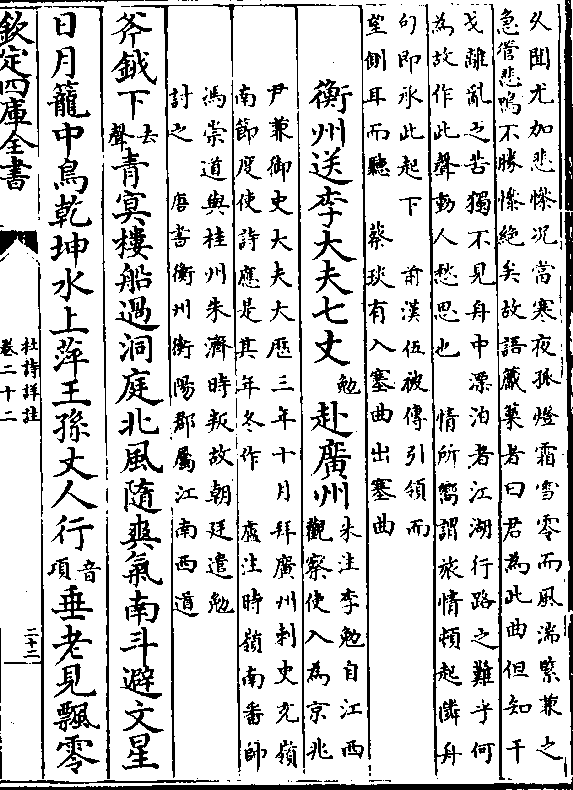 久聞尤加悲慘況當寒夜孤燈霜雪零而風湍緊兼之
急管悲鳴不勝慘絶矣故語觱篥者曰君為此曲但知干
戈離亂之苦獨不見舟中漂泊者江湖行路之難乎何
為故作此聲動人愁思也　情所嚮謂旅情頓起隣舟
句即承此起下　前漢伍被傳引領而
望側耳而聽　蔡琰有入塞曲出塞曲
衡州送李大夫七丈勉赴廣州
朱注李勉自江西
觀察使入為京兆
尹兼御史大夫大厯三年十月拜廣州刺史充嶺
南節度使詩應是其年冬作　盧注時嶺南番帥
馮崇道與桂州朱濟時叛故朝廷遣勉
討之　唐書衡州衡陽郡屬江南西道
斧鉞下去聲青冥樓船過洞庭北風隨爽氣南斗避文星
日月籠中鳥乾坤水上萍王孫丈人行音項垂老見飄零
欽定四庫全書
杜詩詳註
卷二十二
二十二